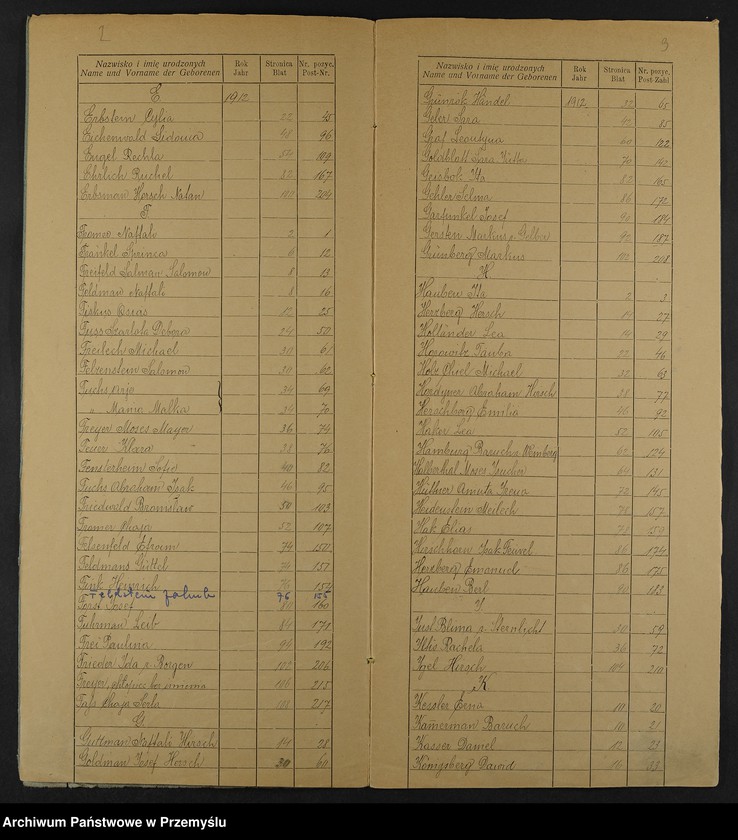 2
Nazwisko i imię urodzonych
Name und Vorname der Geborenen
Rok
Jahr
Stronica
Blat
Nr. pozyc.
Post-Nr.
E 1912
Erbstein Cylia 22 45
Eichenwald Sidonia 48 96
Engel Rechla 54 109
Ehrlich Ruchel 82 167
Erbsman Hersch Natan 100 204
F
Naftale 2 1
Frankel 6 12
Freifeld Salman Salomon 8 13
Feldman Naftali 8 16
Fiskus Osias 12 25
Fuss Szarlota Debora 24 50
Freilech Michael 30 61
Felsenstein Salomon 30 62
Fuchs 34 69
" Mania Malka 34 70
Freyer Moses Mayer 36 74
Feuer Klara 38 76
Fensterheim Zofie 40 82
Fuchs Abraham Izak 46 95
Friedwald Bronisław 50 103
Chaja 52 107
Felsenfeld Efroim 74 150
Feldmans Gittel 74 151
Fink Heinrich 76 154
Felsztein Jakub 76 155
Forst Josef 160
Fuhrman Leib 84 171
Frei Paulina 94 192
Frieder Ida r. Borgen 102 206
Freyer, chłopiec bez imienia 106 215
Chaja Perla 108 217
G
Guttman Naftali Hirsch 14 28
Goldman Josef Hersch 30 60
3
Nazwisko i imię urodzonych
Name und Vorname der Geborenen
Rok
Jahr
Stronica
Blat
Nr. pozyc.
Post-Zahl
Händel 1912 32 65
Geler Sara 42 85
Graf Leontyna 60 122
Goldblatt Sara Jütte 70 140
Geisbok Ita 82 165
Gehler Selma 86 172
Garfunkel Josef 90 184
Gersten Markus r. Gelber 92 187
Grünberg Markus 102 208
H
Hauben Ita 2 3
Herzberg Hersch 14 27
Holländer Lea 14 29
Horowitz Tauba 22 46
Holz Chiel Michael 32 63
Hordyner Abraham Hersch 38 77
Herschberg Emilia 46 92
Haker Lea 52 105
Hamburg Baruch r. Wemberg 62 124
Halberthal Moses Juda 64 131
Hüttner Amuta Irena 72 145
Heidenstein Meilech 78 157
Hak Elias 78 159
Hirschhorn Izak Feiwel 86 174
Herzberg Emanuel 86 175
Hauben Berl 90 183
I
Just Blima r. Sternlicht 30 59
Ittis Rachela 36 72
Izel Hirsch 104 210
K
Kessler Erna 10 20
Kamerman Baruch 10 21
Kaiser Daniel 12 23
Königsberg Dawid 16 33
Archiwum Państwowe w Przemyślu